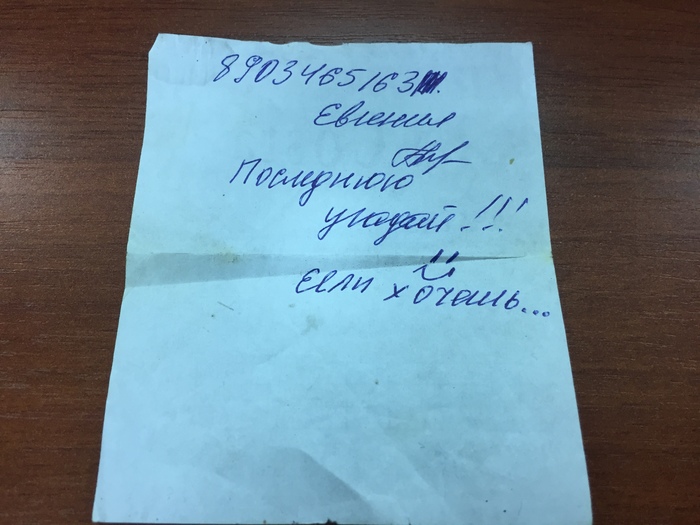 8903465163
Евгения
Последнюю
угадай!!!
если хочешь...